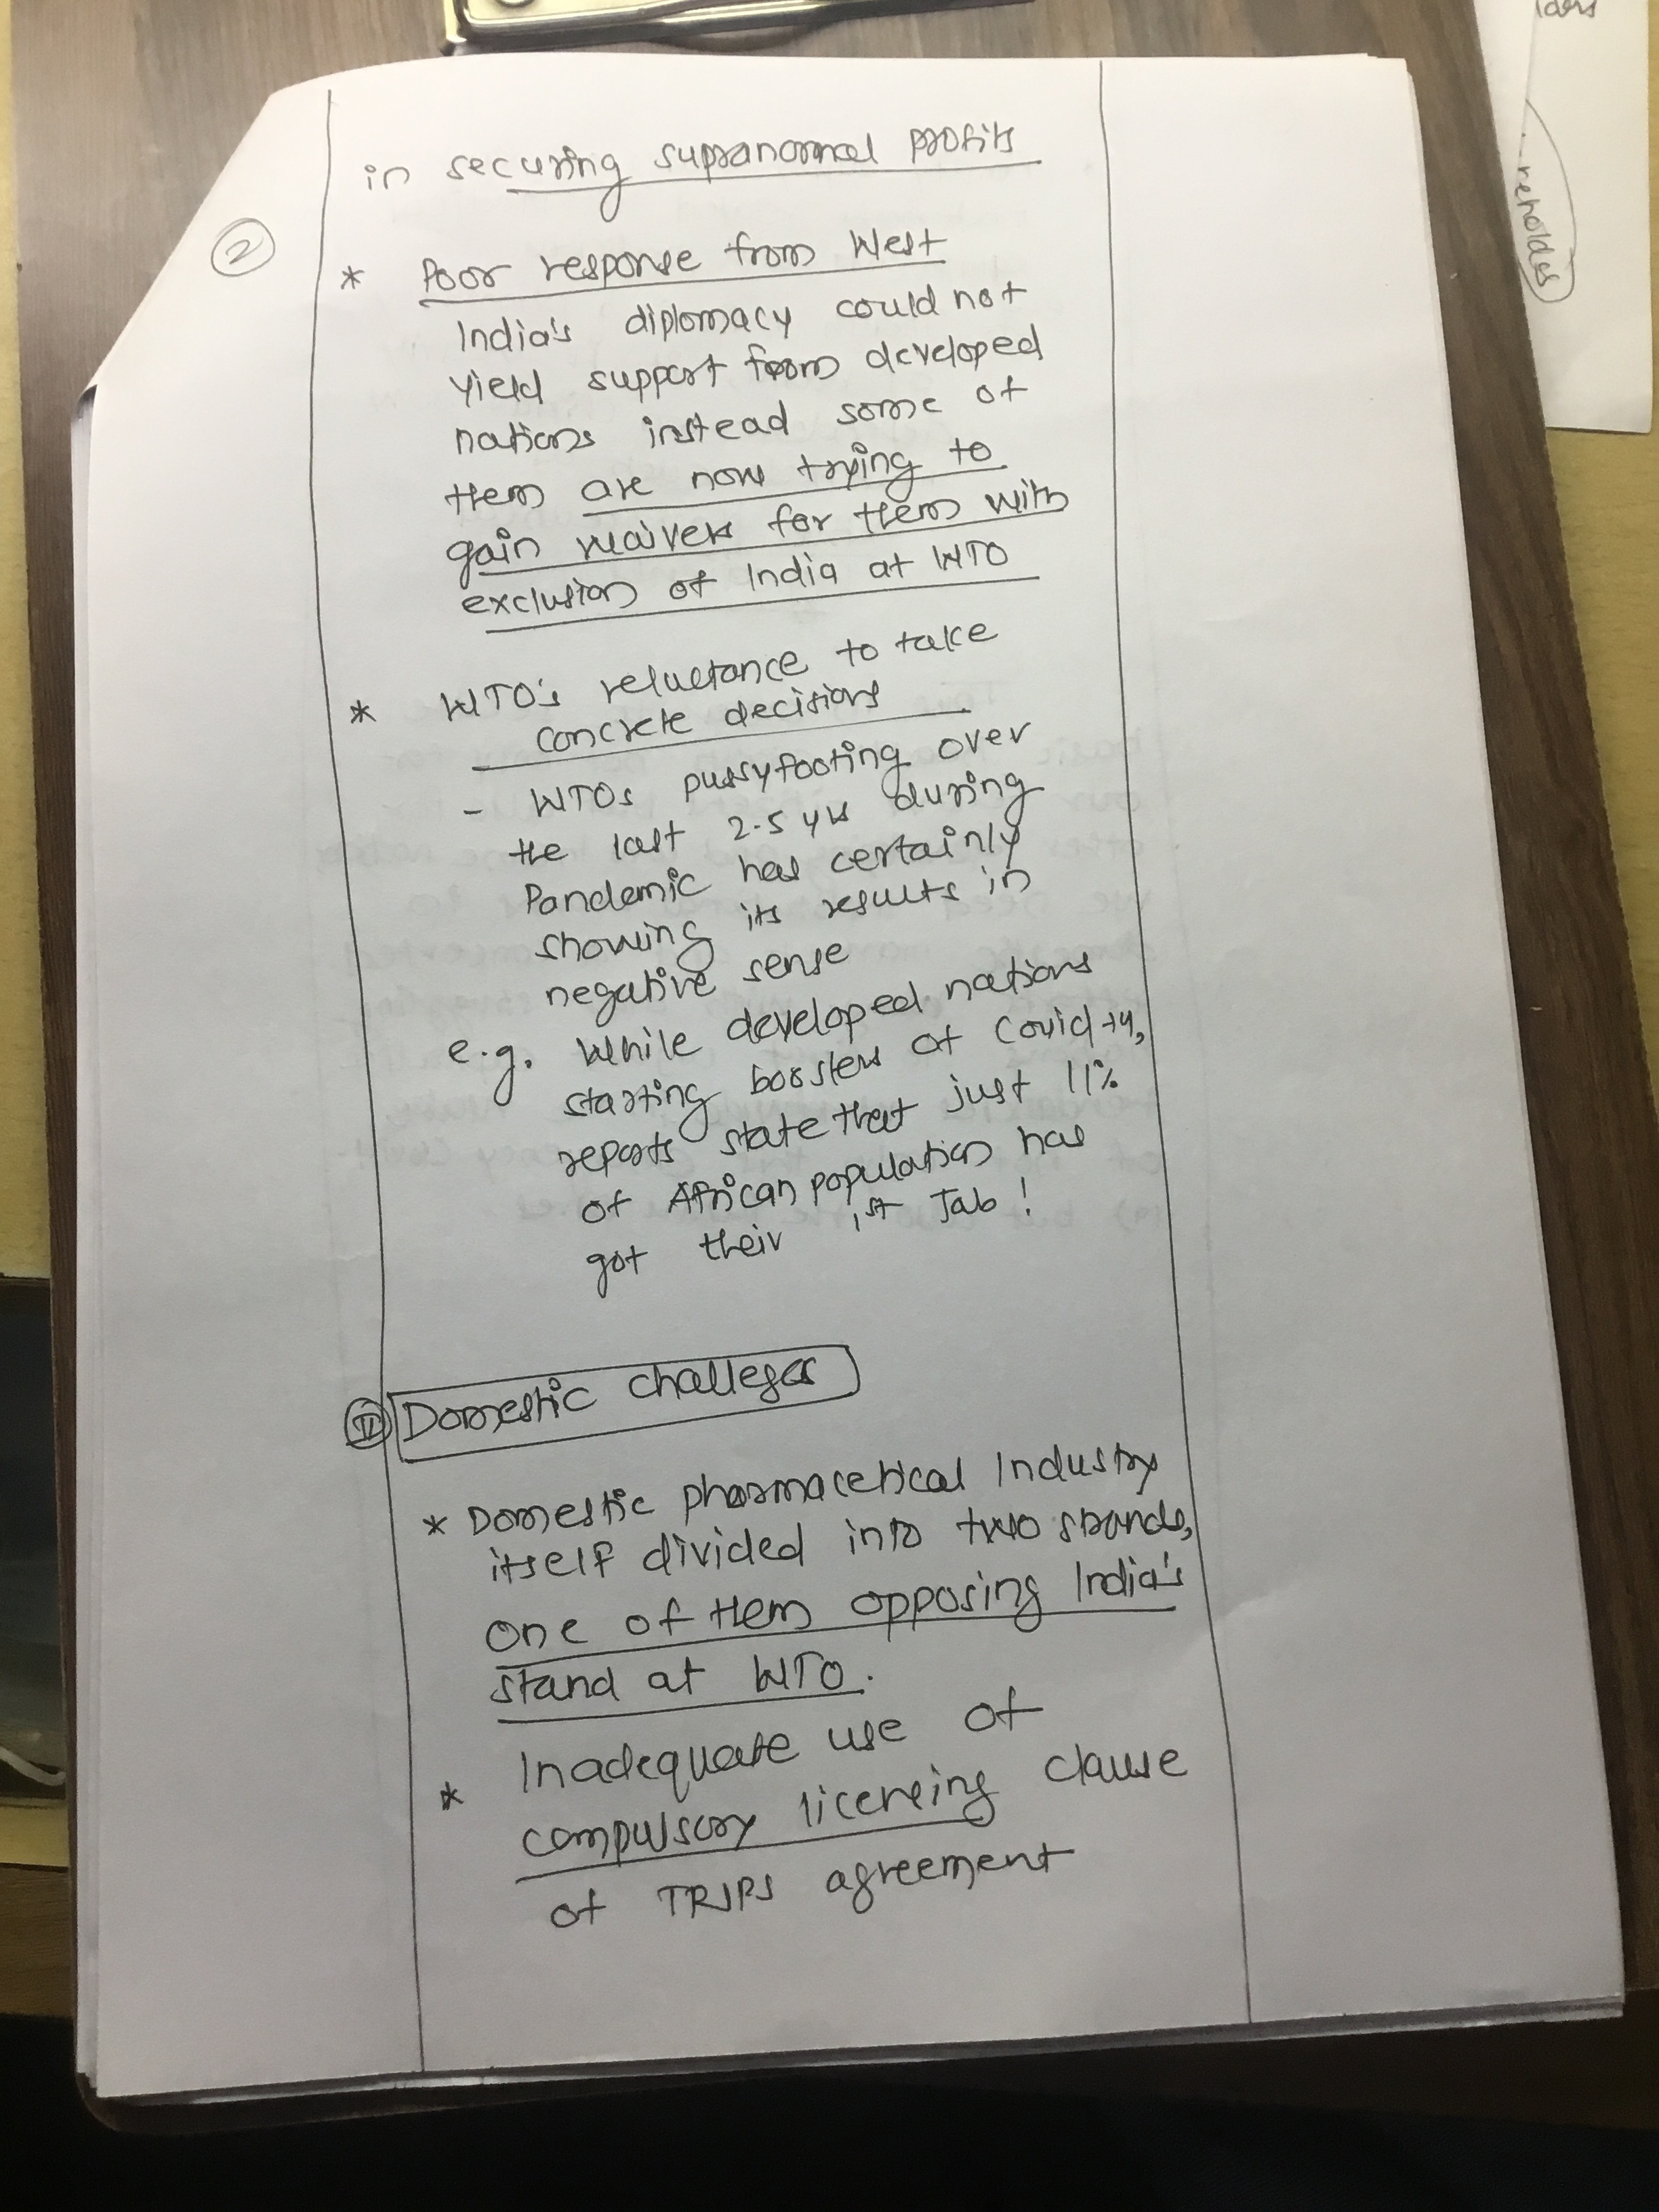 in securing supranormal profits
②
* Poor response from West
India's diplomacy could not
yield support from developed
nations instead some of
them are now trying to
gain waivers for them with
exclusion of India at WTO
* WTO's reluctance to take
concrete decisions
- WTOs pussyfooting over
the last 2.5 yrs during
Pandemic has certainly
showing its results in
negative sense
e.g. While developed nations
starting boosters of Covid-19,
reports state that just 11%
of African population has
got their 1st Jab!
II Domestic challeges
* Domestic pharmacetical Industry
itself divided into two strands,
one of them opposing India's
stand at WTO.
* Inadequate use of
compulsory licensing clause
of TRIPS agreement